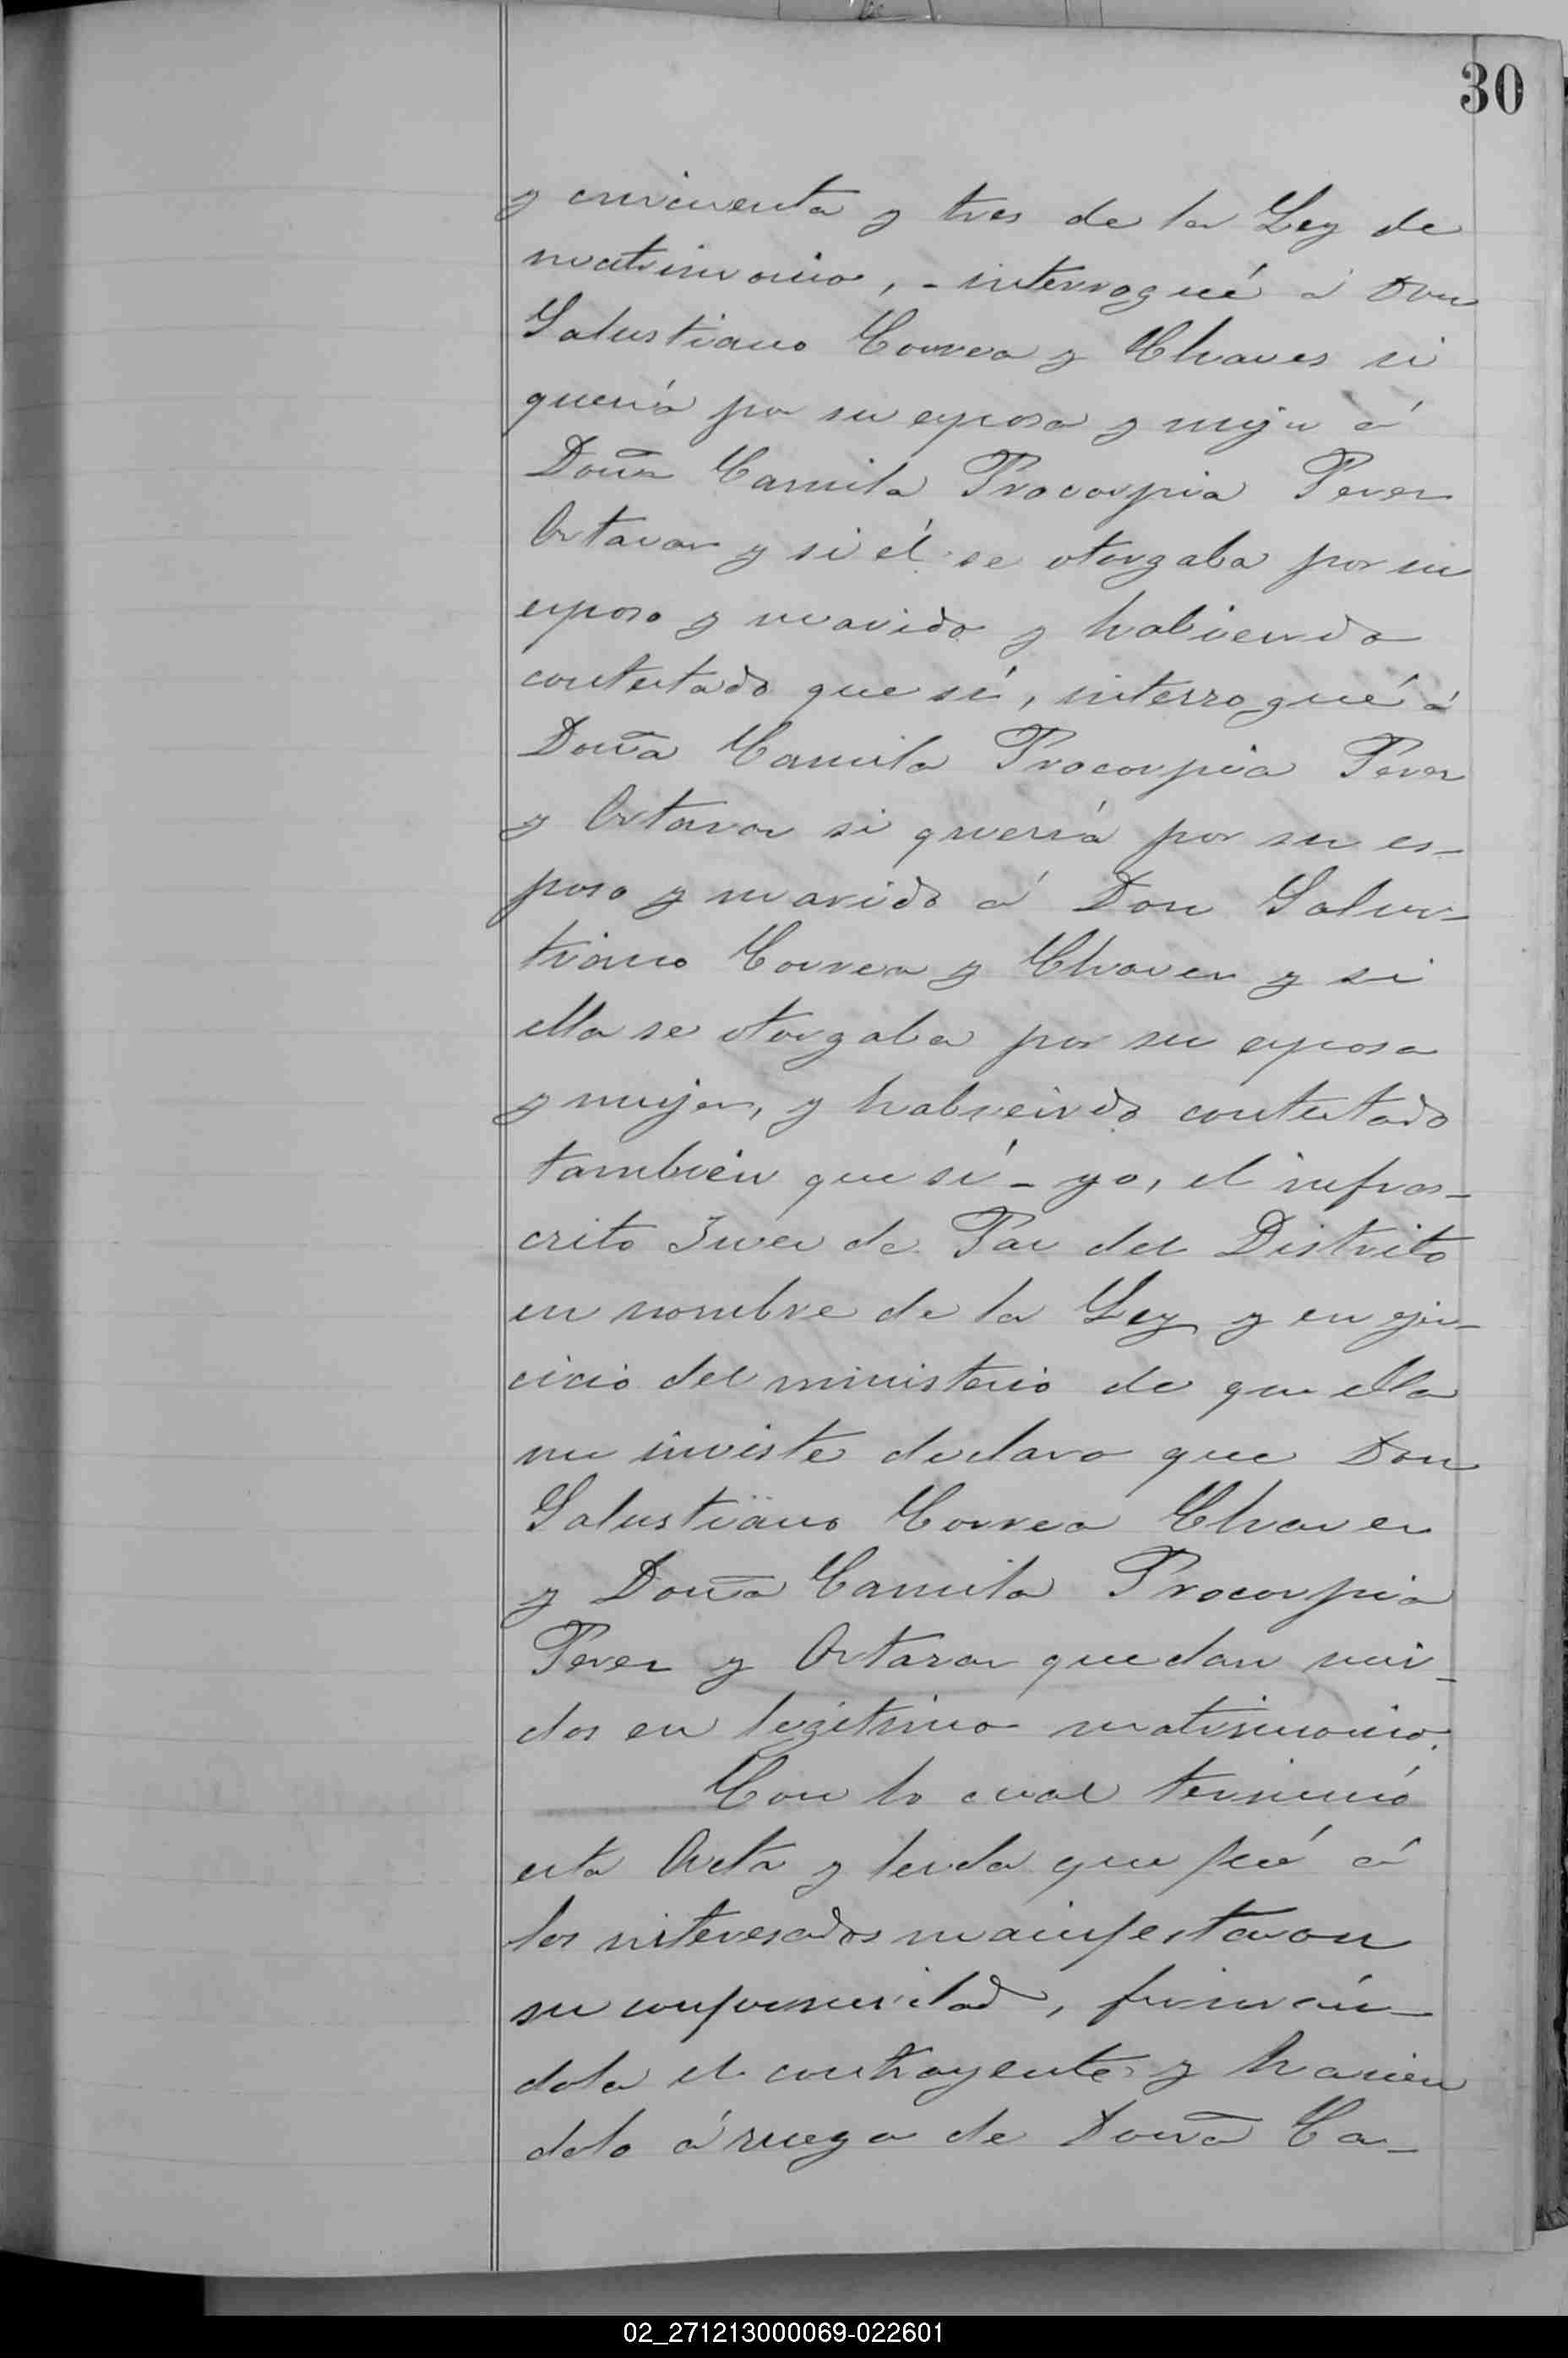 30
y cincuenta y tres de la Ley de
matrimonio, - interrogué á Don
Salustiano Correa y Chaves si
quería por su esposa y mujer á
Doña Camila Procorpia Perez
Artavar y si él se otorgaba por su
esposo y marido y habiendo
contestado que sí, interrogué á
Doña Camila Procorpia Perez
y Artavar si quería por su es-
poso y marido á Don Salus-
tiano Correa y Chaves y si
ella se otorgaba por su esposa
y mujer, y habiendo contestado
también que sí - yo, el infras-
crito Juez de Paz del Distrito
en nombre de la Ley y en ejer-
cicio del ministerio de que ella
me inviste declaro que Don
Salustiano Correa Chaves
y Doña Camila Procorpia
Perez y Artavar quedan uni-
dos en legítimo matrimonio.
Con lo cual terminó
esta Acta y leida que fué á
los interesados manifestaron
su conformidad, firmán-
dola el contrayente y hacien
dolo á ruego de Doña Ca-
02_271213000069-022601